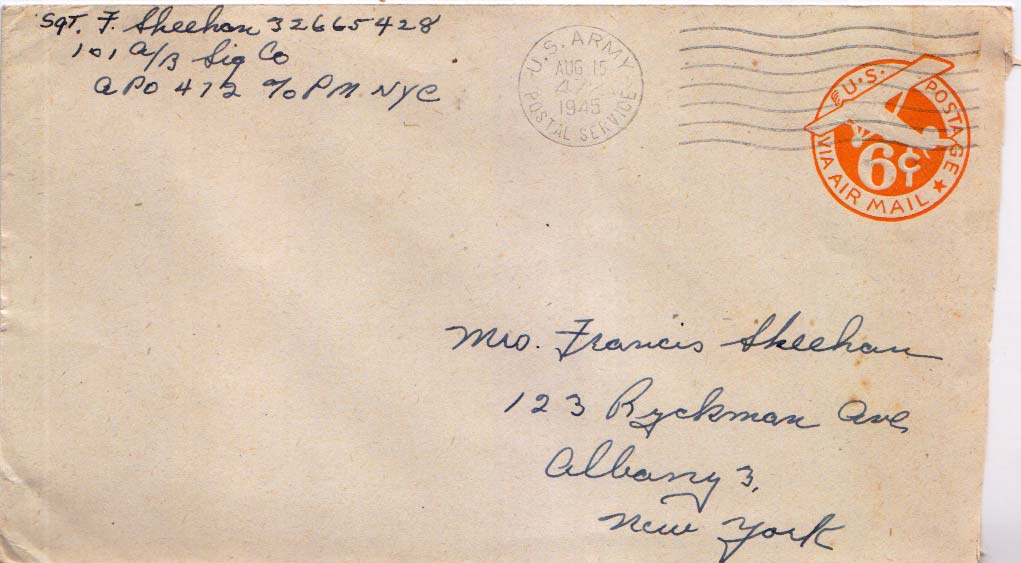 Sgt. F. Sheehan 32665428
101 A/B Sig Co
APO 472 c/o PM NYC
U.S. ARMY
AUG 15
472
1945
POSTAL SERVICE
U.S. POSTAGE
6¢
VIA AIR MAIL
Mrs. Francis Sheehan
123 Ryckman Ave,
Albany 3,
New York